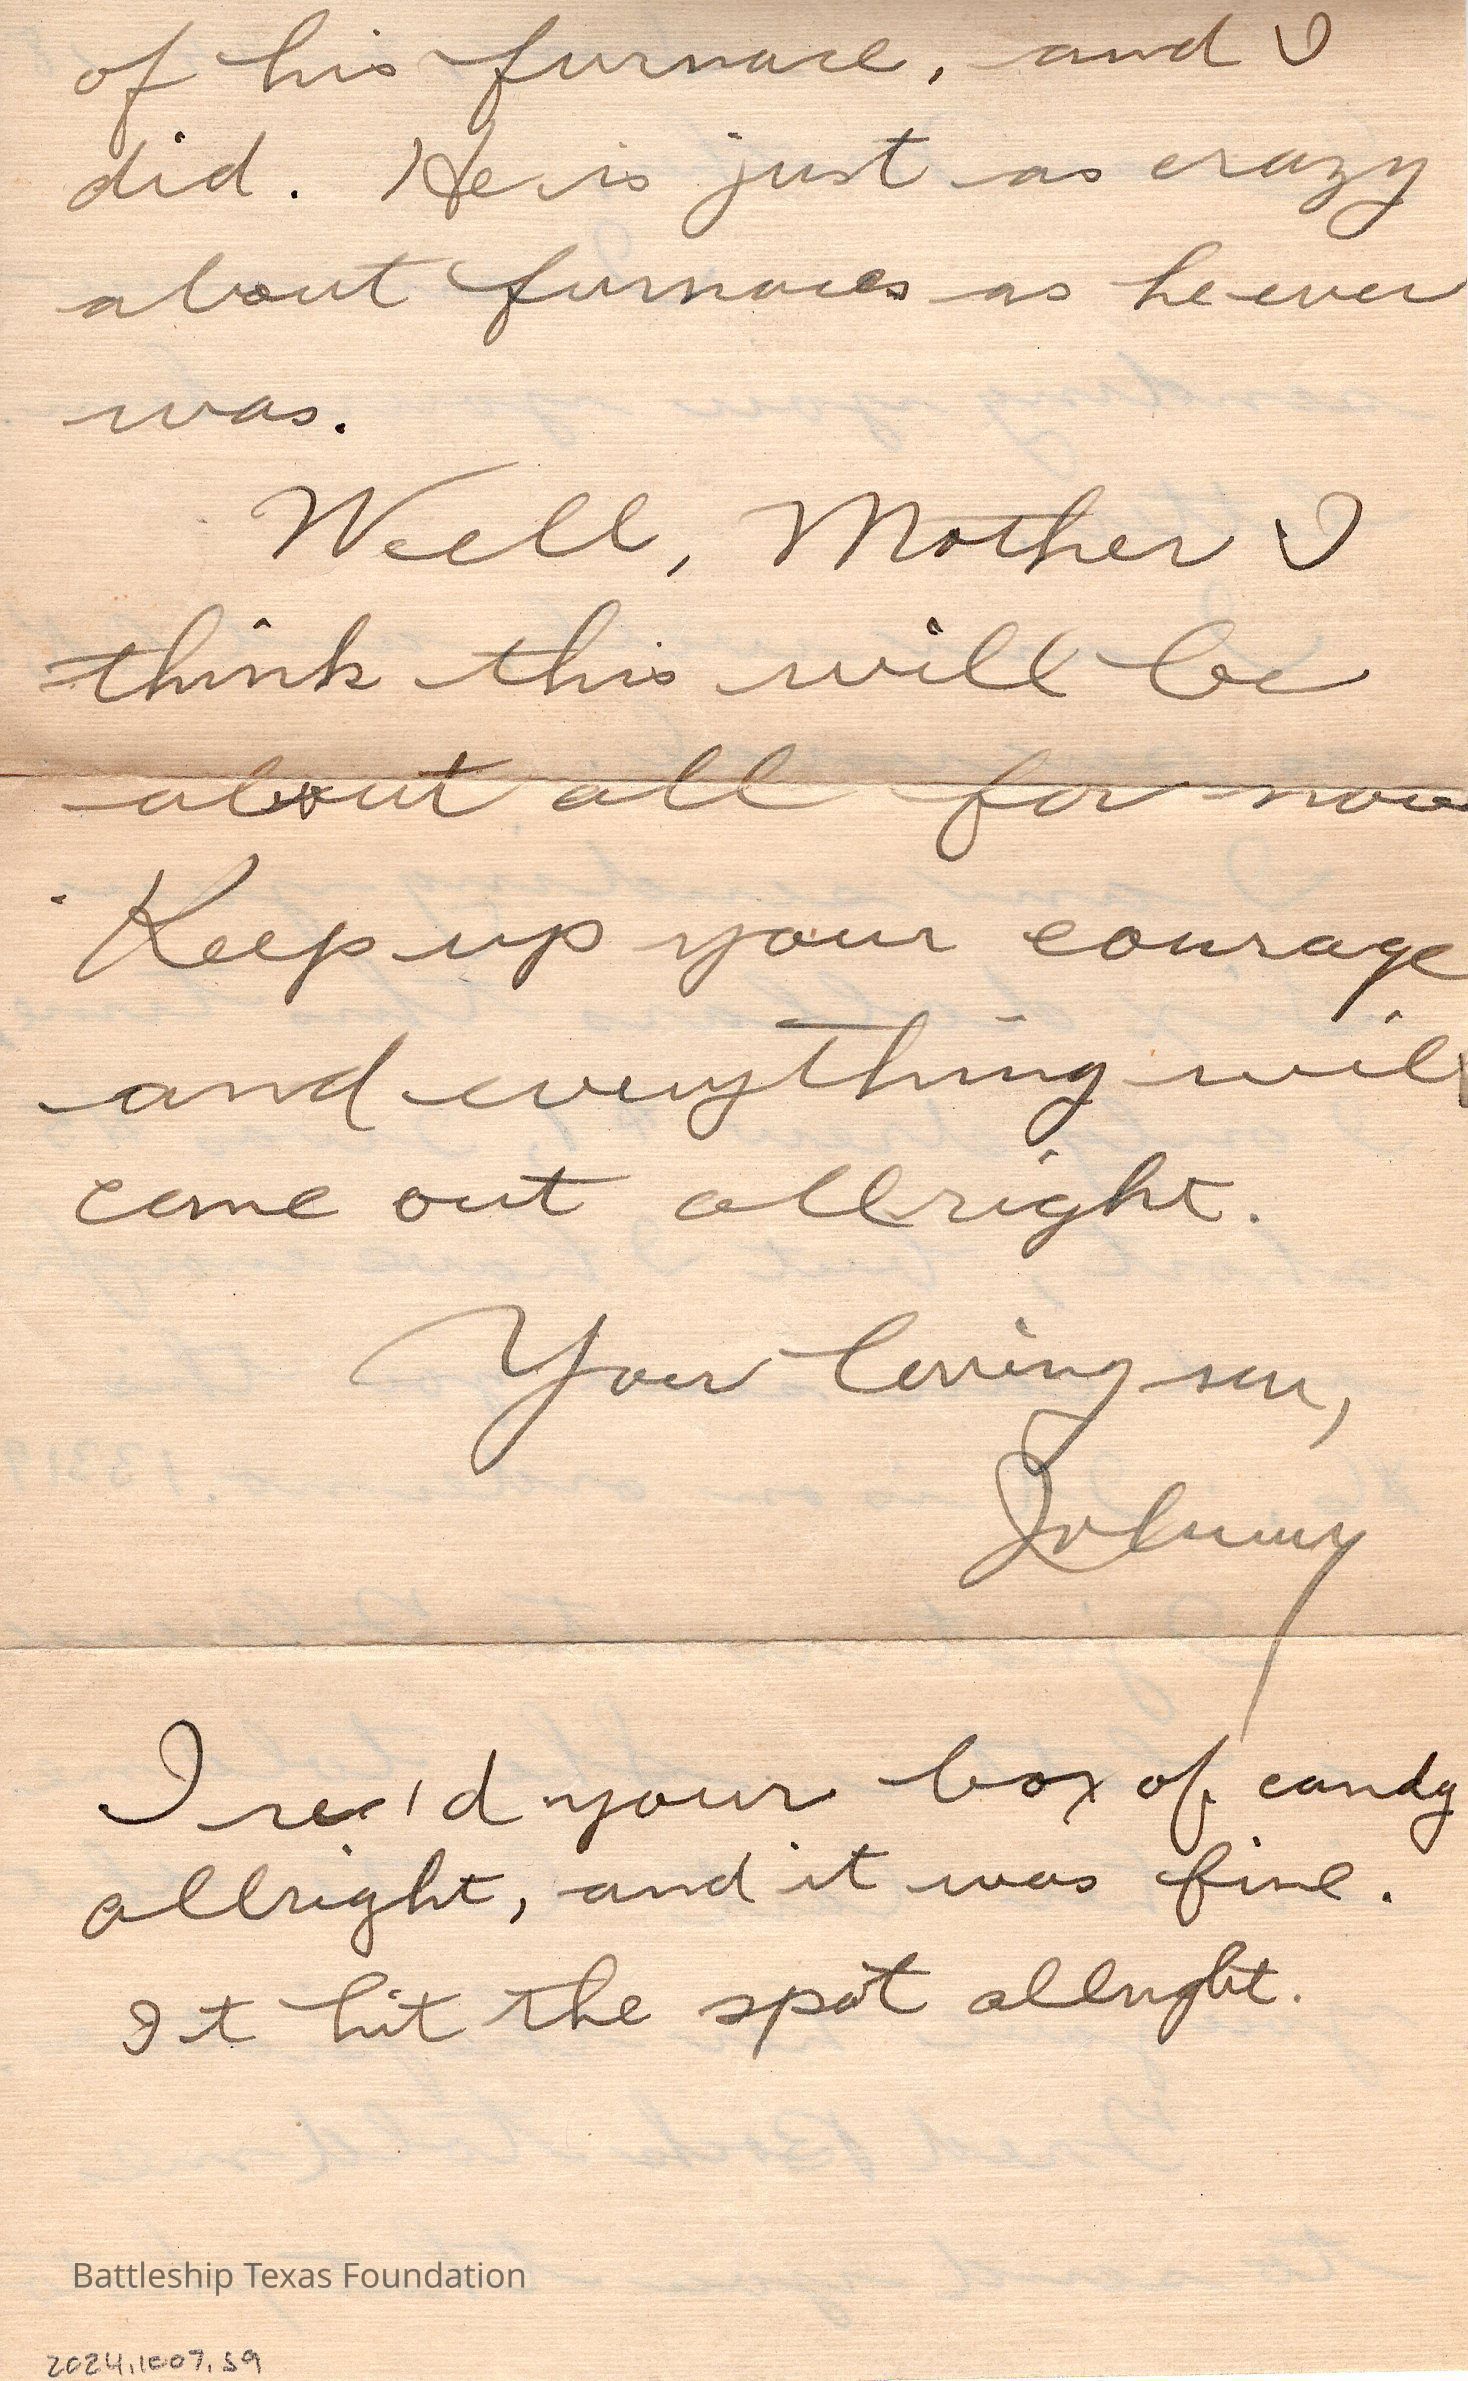 of his furnace, and I
did. He is just as crazy
about furnaces as he ever
was.
Well, Mother I
think this will be
about all for now
Keep up your courage
and everything will
come out allright.
Your loving son,
Johnny
I rec'd your box of candy
allright, and it was fine.
It hit the spot allright.
Battleship Texas Foundation
2024.1007.59